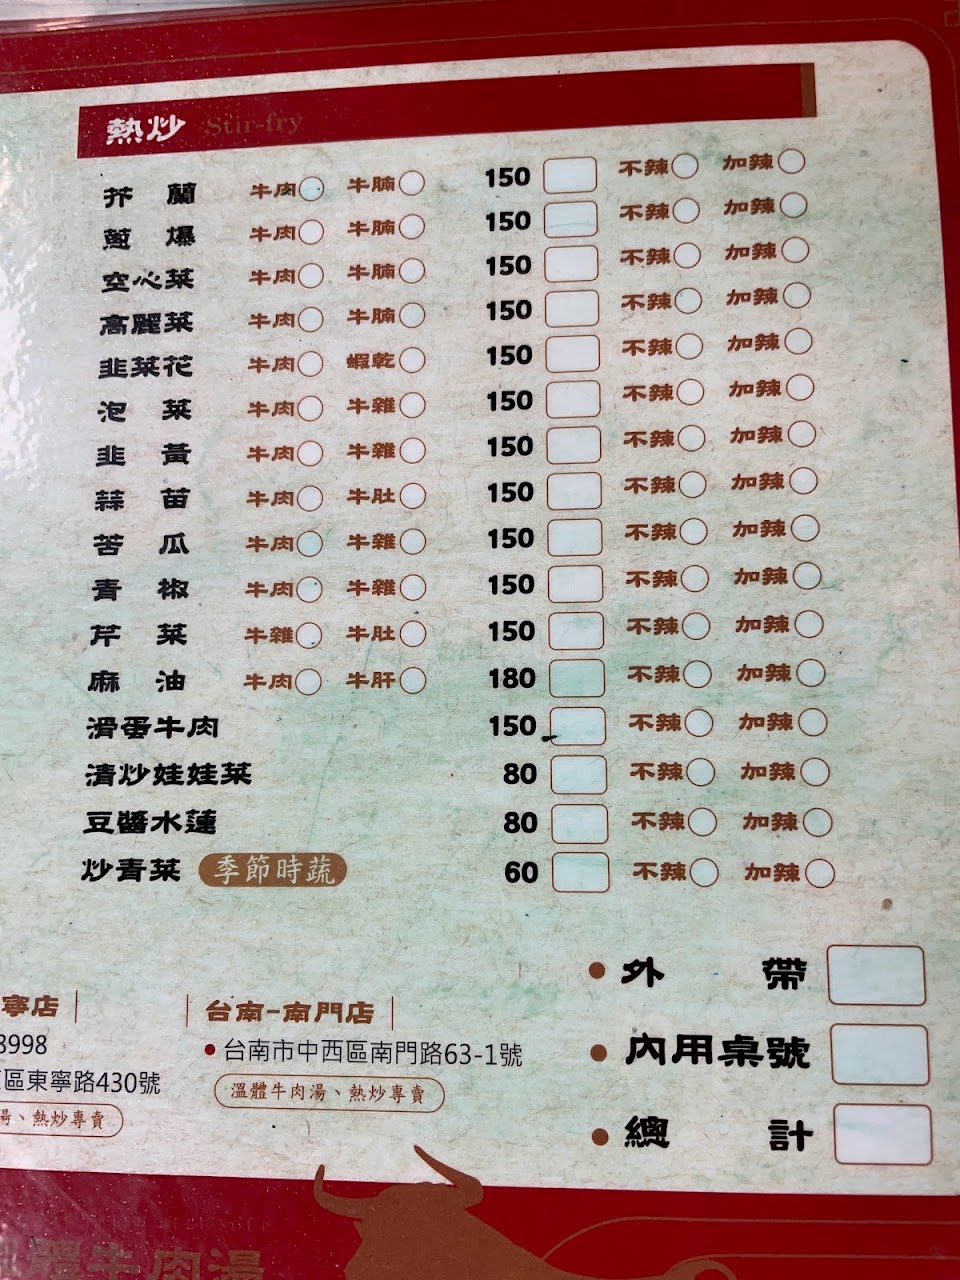 熱炒 Stir-fry
芥蘭 牛肉 牛腩 150 不辣 加辣
蔥爆 牛肉 牛腩 150 不辣 加辣
空心菜 牛肉 牛腩 150 不辣 加辣
高麗菜 牛肉 牛腩 150 不辣 加辣
韭菜花 牛肉 蝦乾 150 不辣 加辣
泡菜 牛肉 牛雜 150 不辣 加辣
韭黃 牛肉 牛雜 150 不辣 加辣
蒜苗 牛肉 牛肚 150 不辣 加辣
苦瓜 牛肉 牛雜 150 不辣 加辣
青椒 牛肉 牛雜 150 不辣 加辣
芹菜 牛雜 牛肚 150 不辣 加辣
麻油 牛肉 牛肝 180 不辣 加辣
滑蛋牛肉 150 不辣 加辣
清炒娃娃菜 80 不辣 加辣
豆醬水蓮 80 不辣 加辣
炒青菜 季節時蔬 60 不辣 加辣
• 外帶
• 內用桌號
• 總計
寧店
8998
區東寧路430號
湯、熱炒專賣
台南-南門店
• 台南市中西區南門路63-1號
溫體牛肉湯、熱炒專賣
體牛肉湯